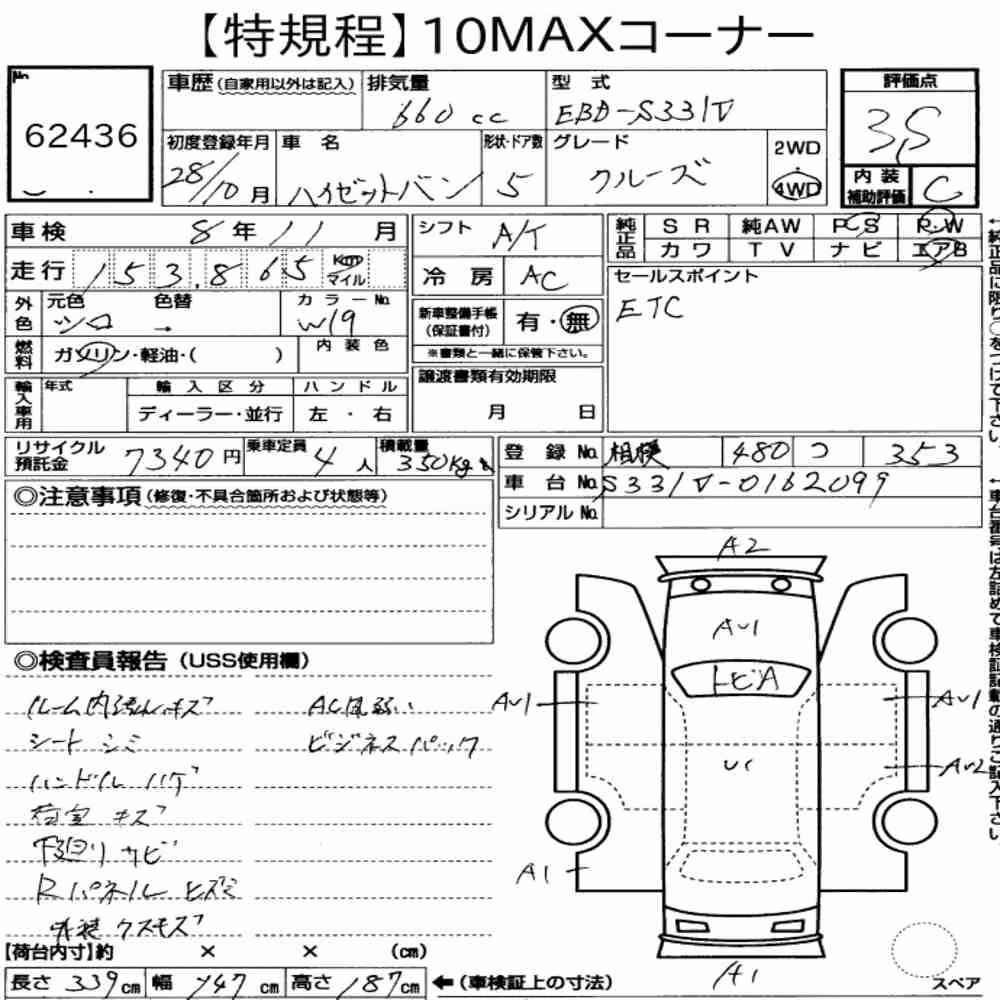 【特規程】10MAXコーナー
No.
62436
車歴(自家用以外は記入)
排気量
660 cc
型式
EBD-S331V
評価点
3.5
初度登録年月
28/10月
車名
ハイゼットバン
形状・ドア数
5
グレード
クルーズ
2WD
・
4WD
内装
補助評価
C
車検 8年11月
シフト A/T
純正品
SR 純AW PS P・W
カワ TV ナビ エアB
走行 153,865 Km マイル
冷房 AC
セールスポイント
ETC
外色
元色 シロ
色替 →
カラーNo.
W19
新車整備手帳
(保証書付)
有・無
※書類と一緒に保管下さい。
燃料
ガソリン・軽油・( )
内装色
輸入車用
年式
輸入区分
ディーラー・並行
ハンドル
左・右
譲渡書類有効期限
月 日
リサイクル
預託金
7340円
乗車定員
4人
積載量
350kg
登録No. 相模 480 コ 353
車台No. S331V-0162099
シリアルNo.
◎注意事項(修復・不具合箇所および状態等)
◎検査員報告(USS使用欄)
ルーム内張りキズ
シート シミ
ハンドル ハゲ
荷室 キズ
下廻り サビ
Rパネル ヒズミ
外装 クスモズ
AC風弱い
ビジネスパック
A2
AU1
トビA
AU1
AU1
U1
AU2
A1
A1
スペア
【荷台内寸】約 × × (cm)
長さ 339cm 幅 147cm 高さ 187cm ←(車検証上の寸法)
←純正品に限り○をつけて下さい。
←車台番号は左詰めで車検証記載の通りご記入下さい。